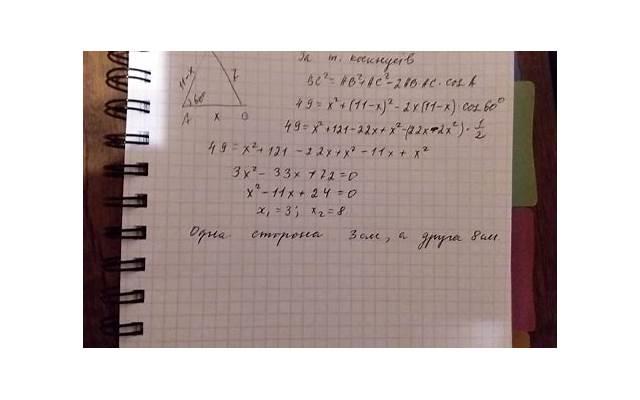 За т. косинусів
BC² = AB² + AC² - 2AB·AC · cos A
49 = x² + (11-x)² - 2x(11-x) · cos 60°
49 = x² + 121 - 22x + x² - (22x - 2x²) · 1/2
49 = x² + 121 - 22x + x² - 11x + x²
3x² - 33x + 72 = 0
x² - 11x + 24 = 0
x₁ = 3; x₂ = 8
Одна сторона 3 см, а друга 8 см
11-x
7
60°
A
x
B